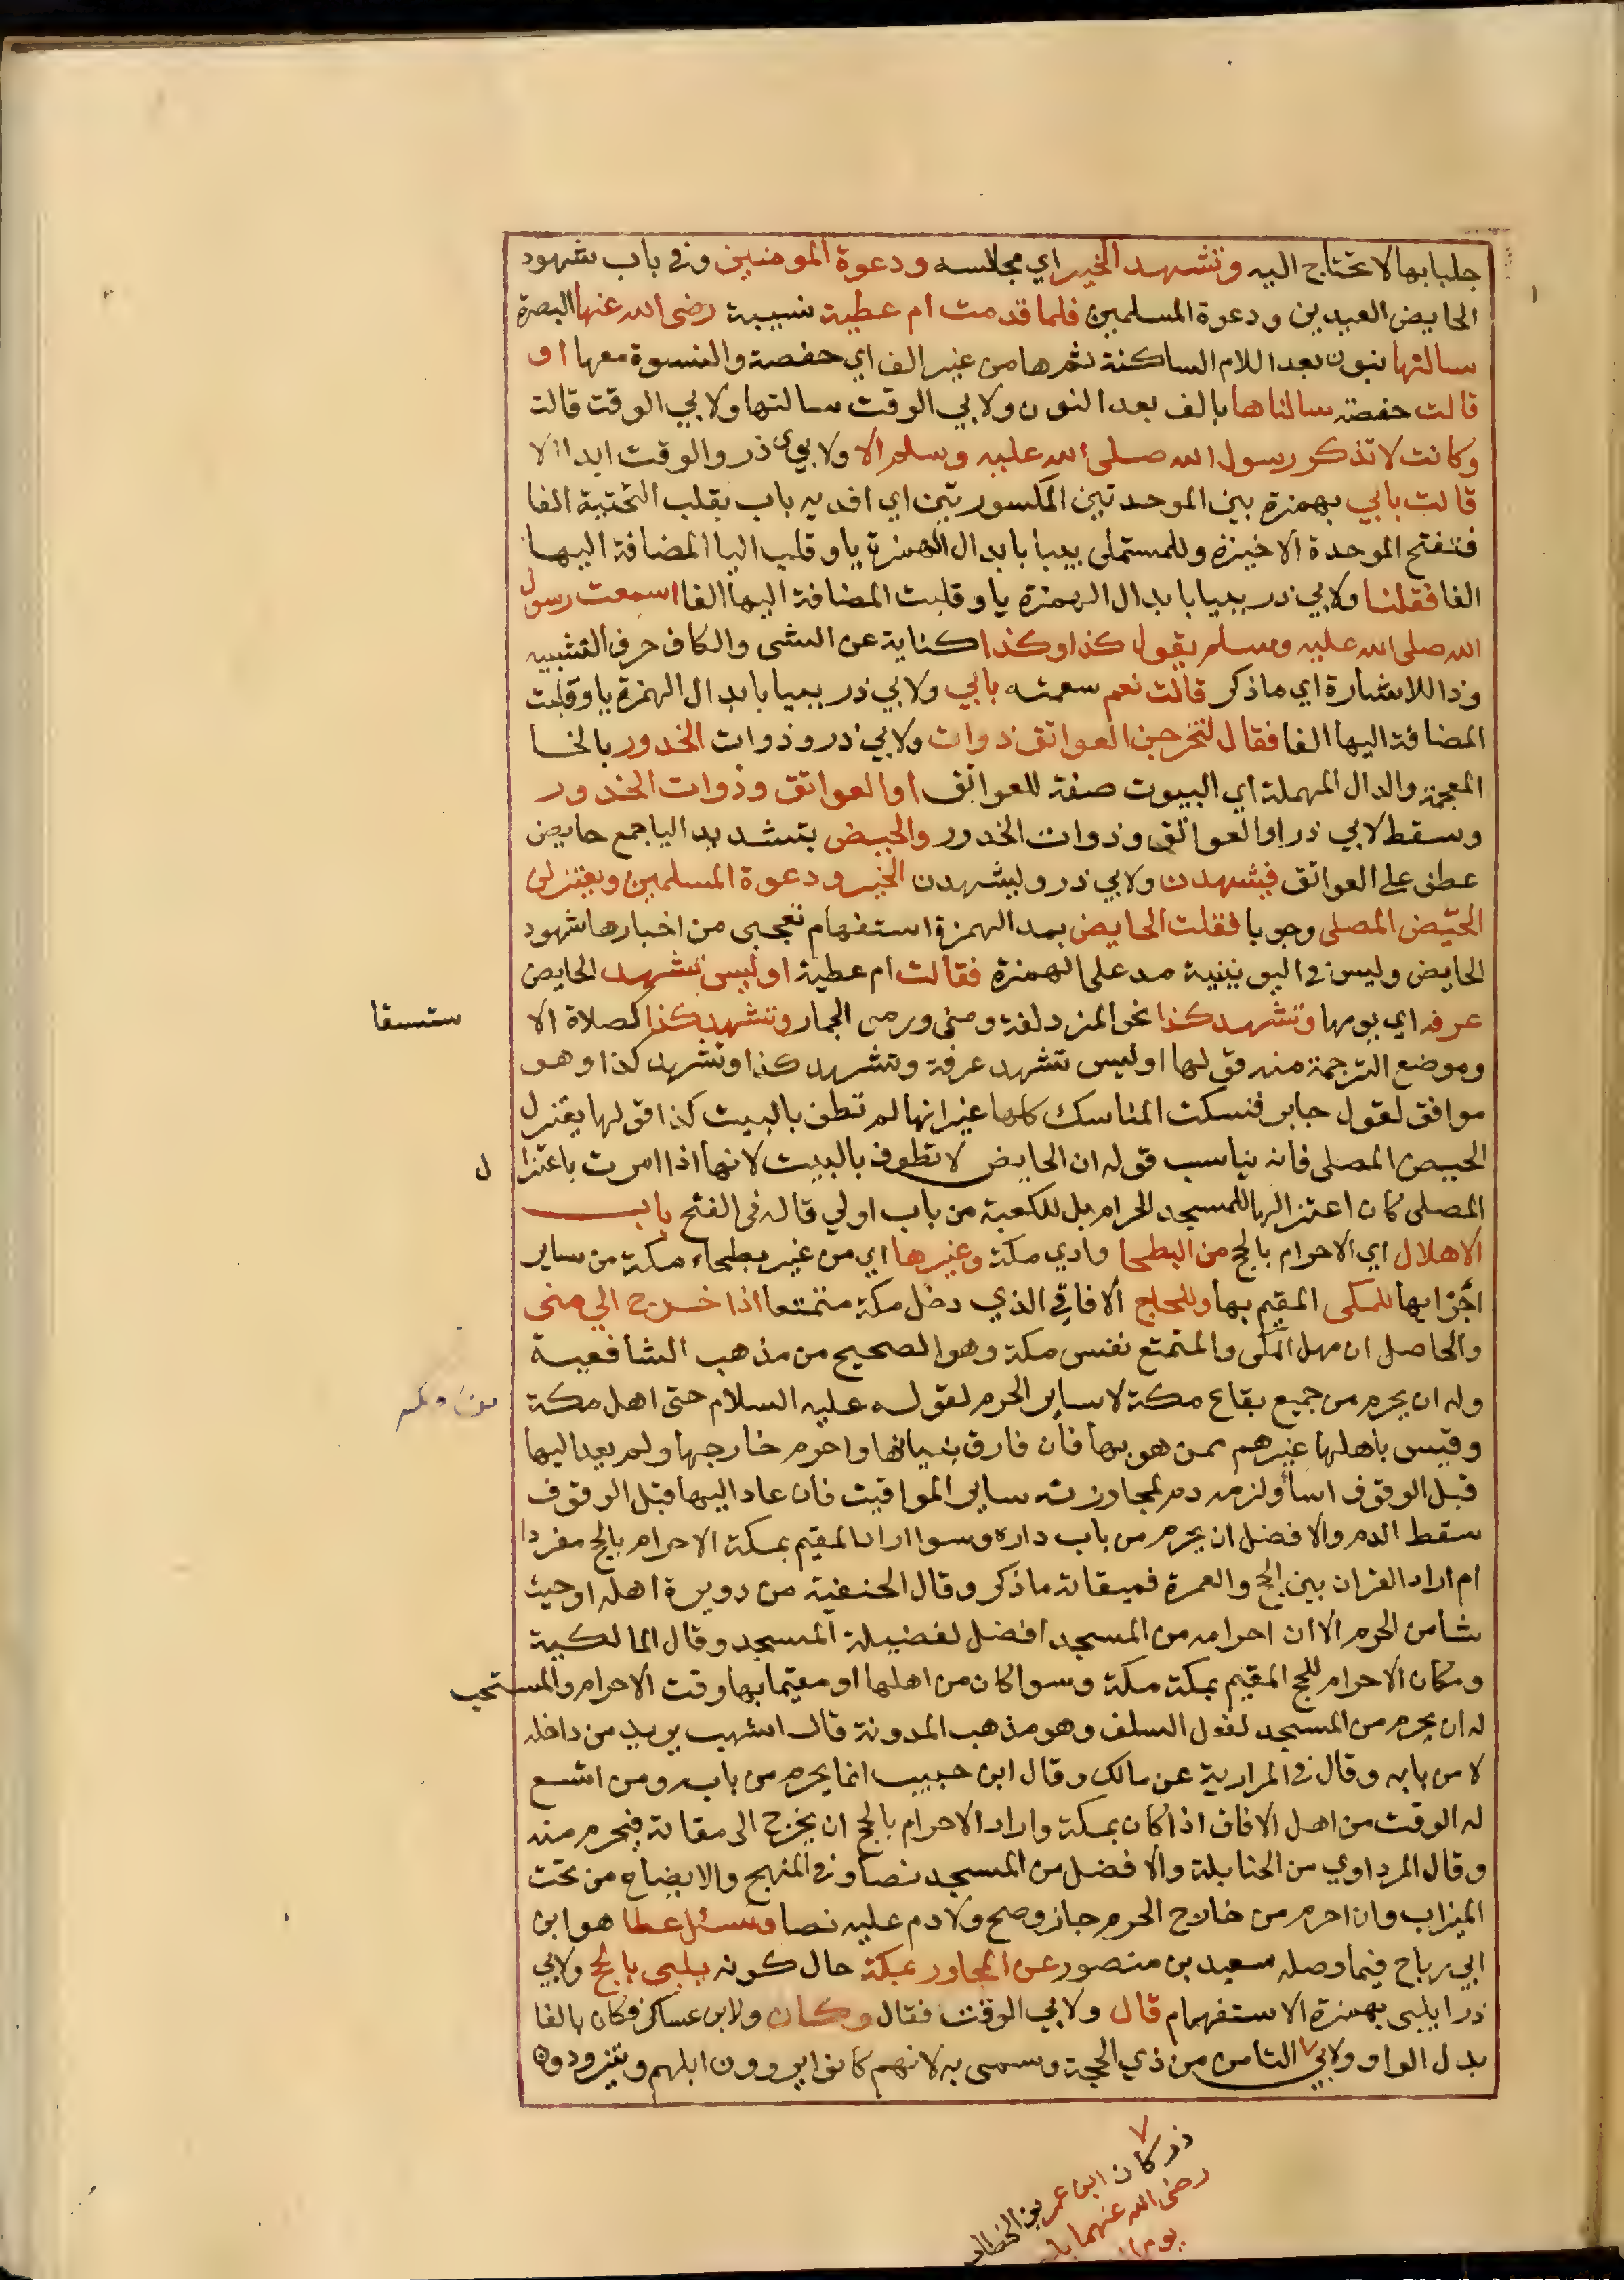 جلبابها لا تحتاج اليه وتشهد الخير اي مجلسه ودعوة المومنين وفي باب شهود
الحايض العيدين ودعوة المسلمين فلما قدمت ام عطية نسيبة رضى الله عنها البصرة
سالنها بنون بعد اللام الساكنة ثم ها من غير الف اي حفصة والنسوة معها او
قالت حفصة سالناها بالف بعد النون ولابي الوقت سالتها ولابي الوقت قالت
وكانت لا تذكر رسول الله صلى الله عليه وسلم الا ولابوي ذر والوقت ابدا الا
قالت بابي بهمزة بين الموحدتين المكسورتين اي افديه باب بقلب التحتية الفا
فتفتح الموحدة الاخيرة وللمستملى بيبا بابدال الهمزة يا وقلب اليا المضافة اليها
الفا فقلنا ولابي ذر بيبا بابدال الهمزة يا وقلبت المضافة اليها الفا اسمعت رسول
الله صلى الله عليه وسلم يقول كذا وكذا كناية عن الشى والكاف حرف التشبيه
وذا للاشارة اي ما ذكر قالت نعم سمعته بابي ولابي ذر بيبا بابدال الهمزة يا وقلبت
المضافة اليها الفا فقال لتخرجن العواتق ذوات ولابي ذر وذوات الخدور بالخا
المعجمة والدال المهملة اي البيوت صفة للعواتق او العواتق وذوات الخدور
وسقط لابي ذر او العواتق وذوات الخدور والحيض بتشديد اليا جمع حايض
عطف على العواتق فيشهدن ولابي ذر وليشهدن الخير ودعوة المسلمين ويعتزلن
الحيّض المصلى وجوبا فقلت الحايض بمد الهمزة استفهام تعجبى من اخبارها شهود
الحايض وليس في اليونينية مد على الهمزة فقالت ام عطية او ليس تشهد الحايض
عرفة اي يومها وتشهد كذا نحو المزدلفة ومنى ورمى الجمار وتشهد كذا كصلاة الا ستسقا
وموضع الترجمة منه قولها او ليس تشهد عرفة وتشهد كذا وتشهد كذا وهو
موافق لقول جابر فنسكت المناسك كلها غير انها لم تطف بالبيت كذا قولها يعتزل
الحيض المصلى فانه يناسب قوله ان الحايض لا تطوف بالبيت لانها اذا امرت باعتزا ل
المصلى كان اعتزالها للمسجد الحرام بل للكعبة من باب اولي قاله في الفتح باب
الاهلال اي الاحرام بالحج من البطحا وادي مكة وغيرها اي من غير بطحاء مكة من ساير
اجزايها للمكى المقيم بها وللحاج الافاقي الذي دخل مكة متمتعا اذا خرج الي منى
والحاصل ان مهل المكى والمتمتع نفس مكة وهو الصحيح من مذهب الشافعية
وله ان يحرم من جميع بقاع مكة لا ساير الحرم لقوله عليه السلام حتى اهل مكة
وقيس باهلها غيرهم ممن هو بها فان فارق بنيانها واحرم خارجها ولم يعد اليها
قبل الوقوف اسأ ولزمه دم لمجاوزته ساير المواقيت فان عاد اليها قبل الوقوف
سقط الدم والافضل ان يحرم من باب داره وسوا اراد المقيم بمكة الاحرام بالحج مفردا
ام اراد القران بين الحج والعمرة فميقاته ما ذكر وقال الحنفية من دويرة اهله او حيث
شا من الحرم الا ان احرامه من المسجد افضل لفضيلة المسجد وقال المالكية
ومكان الاحرام للحج المقيم بمكة مكة وسوا كان من اهلها او مقيما بها وقت الاحرام والمستحب
له ان يحرم من المسجد لفعل السلف وهو مذهب المدونة قال اشهب يريد من داخله
لا من بابه وقال في المرارية عن مالك وقال ابن حبيب انما يحرم من بابه ومن اتسع
له الوقت من اهل الافاق اذا كان بمكة واراد الاحرام بالحج ان يخرج الى مقاته فيحرم منه
وقال المرداوي من الحنابلة والافضل من المسجد نصا وفي المنهج والايضاح من تحت
الميزاب وان احرم من خارج الحرم جاز وصح ولا دم عليه نصا وسئل عطا هو ابن
ابي رباح فيما وصله سعيد بن منصور عن المجاور بمكة حال كونه يلبى بالحج ولابي
ذر ايلبى بهمزة الاستفهام قال ولابي الوقت فقال وكان ولابن عساكر فكان بالفا
بدل الواو ولابي الثامن من ذي الحجة وسمى به لانهم كانوا يروون ابلهم ويتزودون
ذر كان ابن عمر بن الخطاب
رضى الله عنهما
يوم